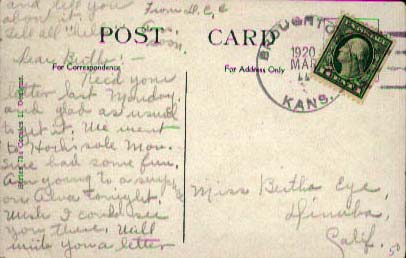 and tell you
about it.
Tell all "hello"
From D. C. C.
POST CARD
For Correspondence
For Address Only
BROUGHTON
1920
MAR
KANS.
Dear Birtha:-
Recd your
letter last Monday
and glad as usual
to get it. We went
to sale Mon.
Sure had some fun.
Am going to a
on tonight.
Wish I could see
you there. Will
write you a letter
Miss Birtha Eye,
Dinuba,
Calif.